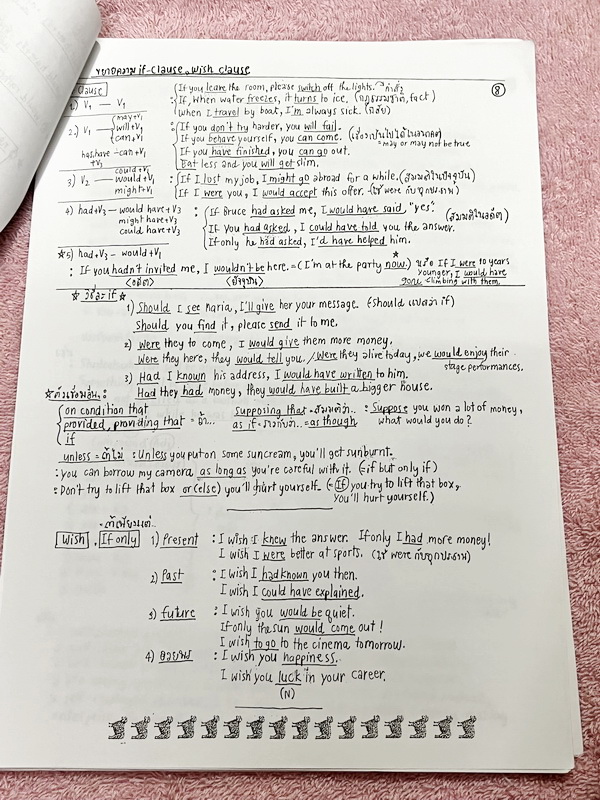 ขยายความ if-clause, wish clause
Clause
⑧
1.) V₁ — V₁
: If you leave the room, please switch off the lights. คำสั่ง
: If, When water freezes, it turns to ice. (กฎธรรมชาติ, fact)
When I travel by boat, I'm always sick. (นิสัย)
2.) V₁ — may+V₁
will+V₁
can+V₁
has,have +V₃ —can+V₁
: If you don't try harder, you will fail.
If you behave yourself, you can come. (เรื่องเป็นไปได้ในอนาคต) =may or may not be true
If you have finished, you can go out.
Eat less and you will get slim.
3) V₂ — could+V₁
would+V₁
might+V₁
: If I lost my job, I might go abroad for a while. (สมมติในปัจจุบัน)
If I were you, I would accept this offer. (ใช้ were กับทุกประธาน)
4) had+V₃ — would have+V₃
might have+V₃
could have+V₃
: If Bruce had asked me, I would have said, "yes".
If you had asked, I could have told you the answer. (สมมติในอดีต)
If only he had asked, I'd have helped him.
★5) had+V₃ — would+V₁
: If you hadn't invited me, I wouldn't be here. = (I'm at the party now.) หรือ If I were 10 years younger, I would have gone climbing with them.
(อดีต) (ปัจจุบัน)
★ วิธีละ if ★
1) Should I see Maria, I'll give her your message. (Should แปลว่า if)
Should you find it, please send it to me.
2) Were they to come, I would give them more money.
Were they here, they would tell you. / Were they alive today, we would enjoy their stage performances.
3) Had I known his address, I would have written to him.
Had they had money, they would have built a bigger house.
★ตัวเชื่อมอื่นๆ:
on condition that
provided, providing that = ถ้า...
if
supposing that = สมมติว่า..
as if = ราวกับว่า.. = as though
: Suppose you won a lot of money, what would you do?
unless = ถ้าไม่ : Unless you put on some suncream, you'll get sunburnt.
: You can borrow my camera as long as you're careful with it. (=if but only if)
: Don't try to lift that box or (else) you'll hurt yourself. (=If you try to lift that box, you'll hurt yourself.)
Wish , If only
1) Present : I wish I knew the answer. If only I had more money!
I wish I were better at sports. (ใช้ were กับทุกประธาน)
2) Past : I wish I had known you then.
I wish I could have explained.
3) future : I wish you would be quiet.
If only the sun would come out!
I wish to go to the cinema tomorrow.
4) อวยพร : I wish you happiness.
I wish you luck in your career.
(N)